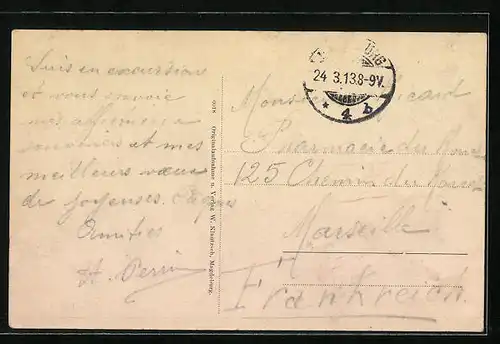 Suis en excursions
et vous envoie
mes
souvenirs et mes
meilleurs vœux
de joyeuses
Amitiés
Perrin
6018 Originalaufnahme u. Verlag W. Klautzsch, Magdeburg.
24 3.13.8-9V.
* 4 b
Monsieur
Pharmacie du
125 Chemin du
Marseille
Frankreich.